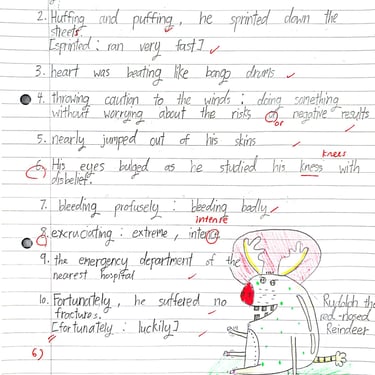 2. Huffing and puffing, he sprinted down the
streets.
[sprinted : ran very fast]
3. heart was beating like bongo drums
4. throwing caution to the winds : doing something
without worrying about the risks of negative results
or
5. nearly jumped out of his skins
knees
6. His eyes bulged as he studied his kness with
disbelief.
7. bleeding profusely : bleeding badly
intense
8. excruciating : extreme,
9. the emergency department of the
nearest hospital
10. Fortunately, he suffered no
fractures.
[fortunately : luckily]
Rudolph the
red-nosed
Reindeer
6)